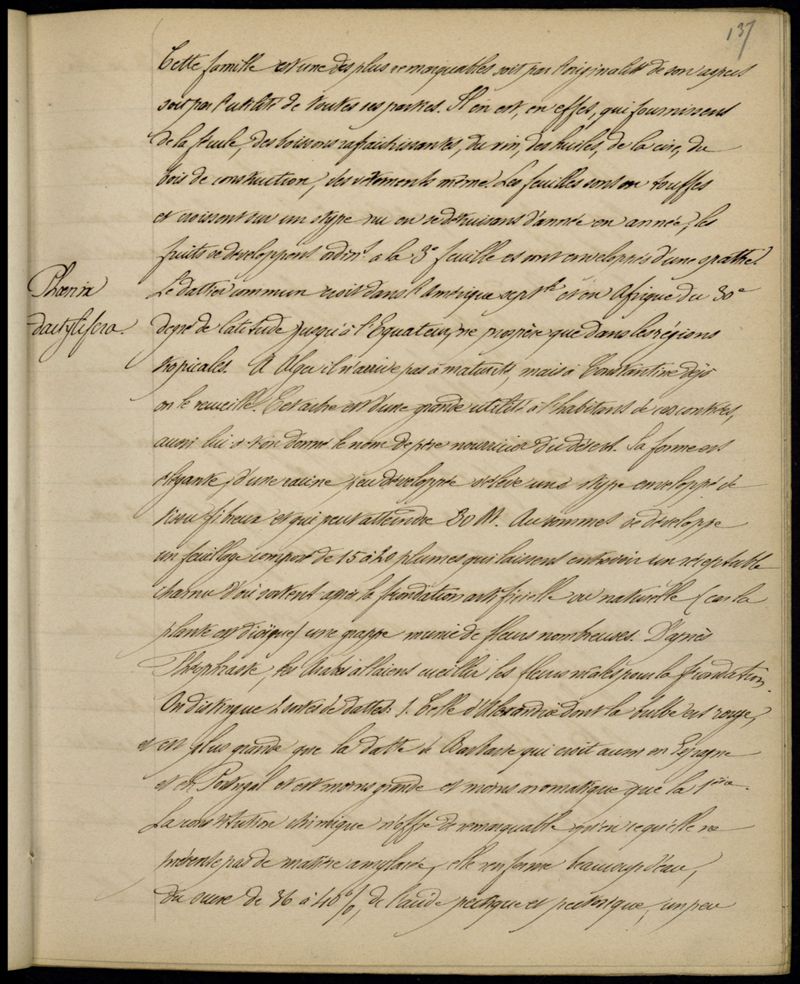 137
Cette famille est une des plus remarquables soit par l'originalité de son aspect
soit par l'utilité de toutes ses parties. Il en est, en effet, qui fournissent
de la fécule, des boissons rafraichissantes, du vin, des huiles, de la cire, du
bois de construction, des vêtements même. Les feuilles sont en touffes
et croissent sur un stype nu en se détruisant d'année en année, les
fruits se développent à la 3e feuille et sont enveloppés d'une spathe.
Phoenix
dactylifera.
Le dattier commun croit dans l'Amérique sept.le et en Afrique du 30e
degré de latitude jusqu'à l'Equateur, ne prospère que dans les régions
tropicales. A Alger il n'arrive pas à maturité, mais à Constantine déjà
on le recueille. Cet arbre est d'une grande utilité à l'habitant de ces contrées,
aussi lui a-t-on donné le nom de père nourricier du désert. Sa forme est
élégante, d'une racine peu développée s'élève une stype enveloppé de
tissu fibreux et qui peut atteindre 30 M. Au sommet se développe
un feuillage composé de 15 à 20 plumes qui laissent entrevoir un réceptacle
charnu d'où sortent après la fécondation artificielle ou naturelle (car la
plante est dioïque) une grappe munie de fleurs nombreuses. D'après
Théophraste, les Arabes allaient cueillir les fleurs mâles pour la fécondation.
On distingue 2 sortes de dattes. 1. Celle d'Alexandrie dont la bulbe est rouge,
et est plus grande que la datte de Barbarie qui croit aussi en Espagne
et en Portugal et est moins grande et moins aromatique que la 1ère.
La constitution chimique n'offre de remarquable qu'en ce qu'elle ne
présente pas de matière amylacée, elle renferme beaucoup d'eau,
du sucre de 36 à 40%, de l'acide pectique et pectosique, un peu